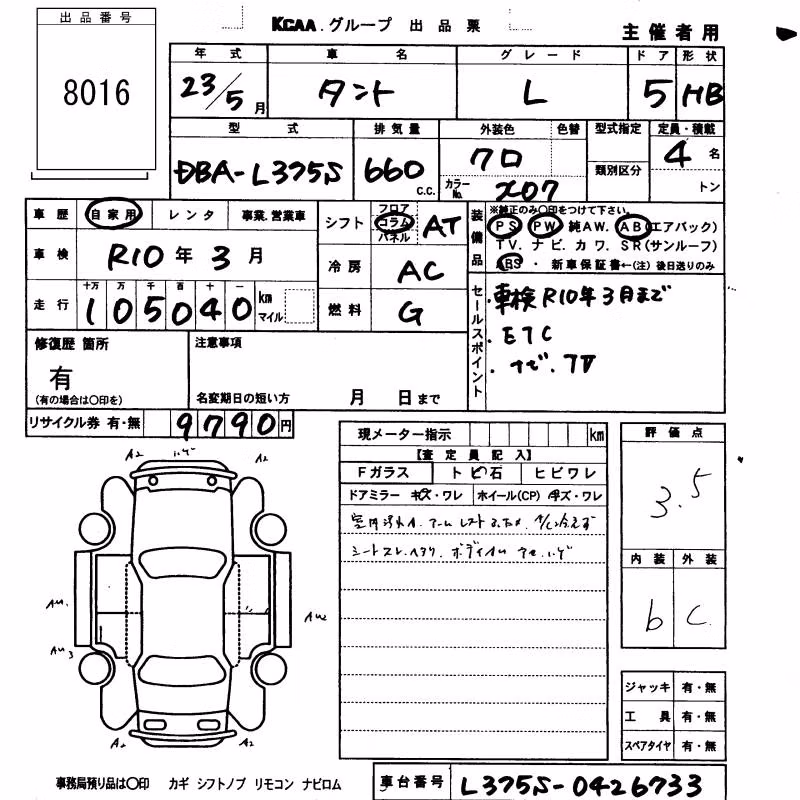 出品番号
8016
KCAA.グループ 出品票
主催者用
年式 車名 グレード ドア 形状
23/5月 タント L 5 HB
型式 排気量 外装色 色替 型式指定 定員・積載
類別区分
DBA-L375S 660 c.c. クロ 4名
カラーNo. X07 トン
車歴 自家用 レンタ 事業.営業車
シフト フロア コラム パネル AT
装備品 ※純正のみ〇印をつけて下さい。
PS PW 純AW. AB(エアバック)
TV. ナビ. カワ. SR(サンルーフ)
ABS ・ 新車保証書←(注) 後日送りのみ
車検 R10年3月
冷房 AC
走行 十万 万 千 百 十 一
105040 km マイル
燃料 G
セールスポイント
・車検R10年3月まで
・ETC
・ナビ.TV
修復歴 箇所
有
(有の場合は〇印を)
注意事項
名変期日の短い方 月 日まで
リサイクル券 有・無 9790円
現メーター指示 km
【査定員記入】
Fガラス トビ石 ヒビワレ
ドアミラー キズ・ワレ ホイール(CP) キズ・ワレ
評価点
3.5
内装 外装
b C
A2 A2
A2
ジャッキ 有・無
工具 有・無
スペアタイヤ 有・無
事務局預り品は〇印 カギ シフトノブ リモコン ナビロム
車台番号 L375S-0426733